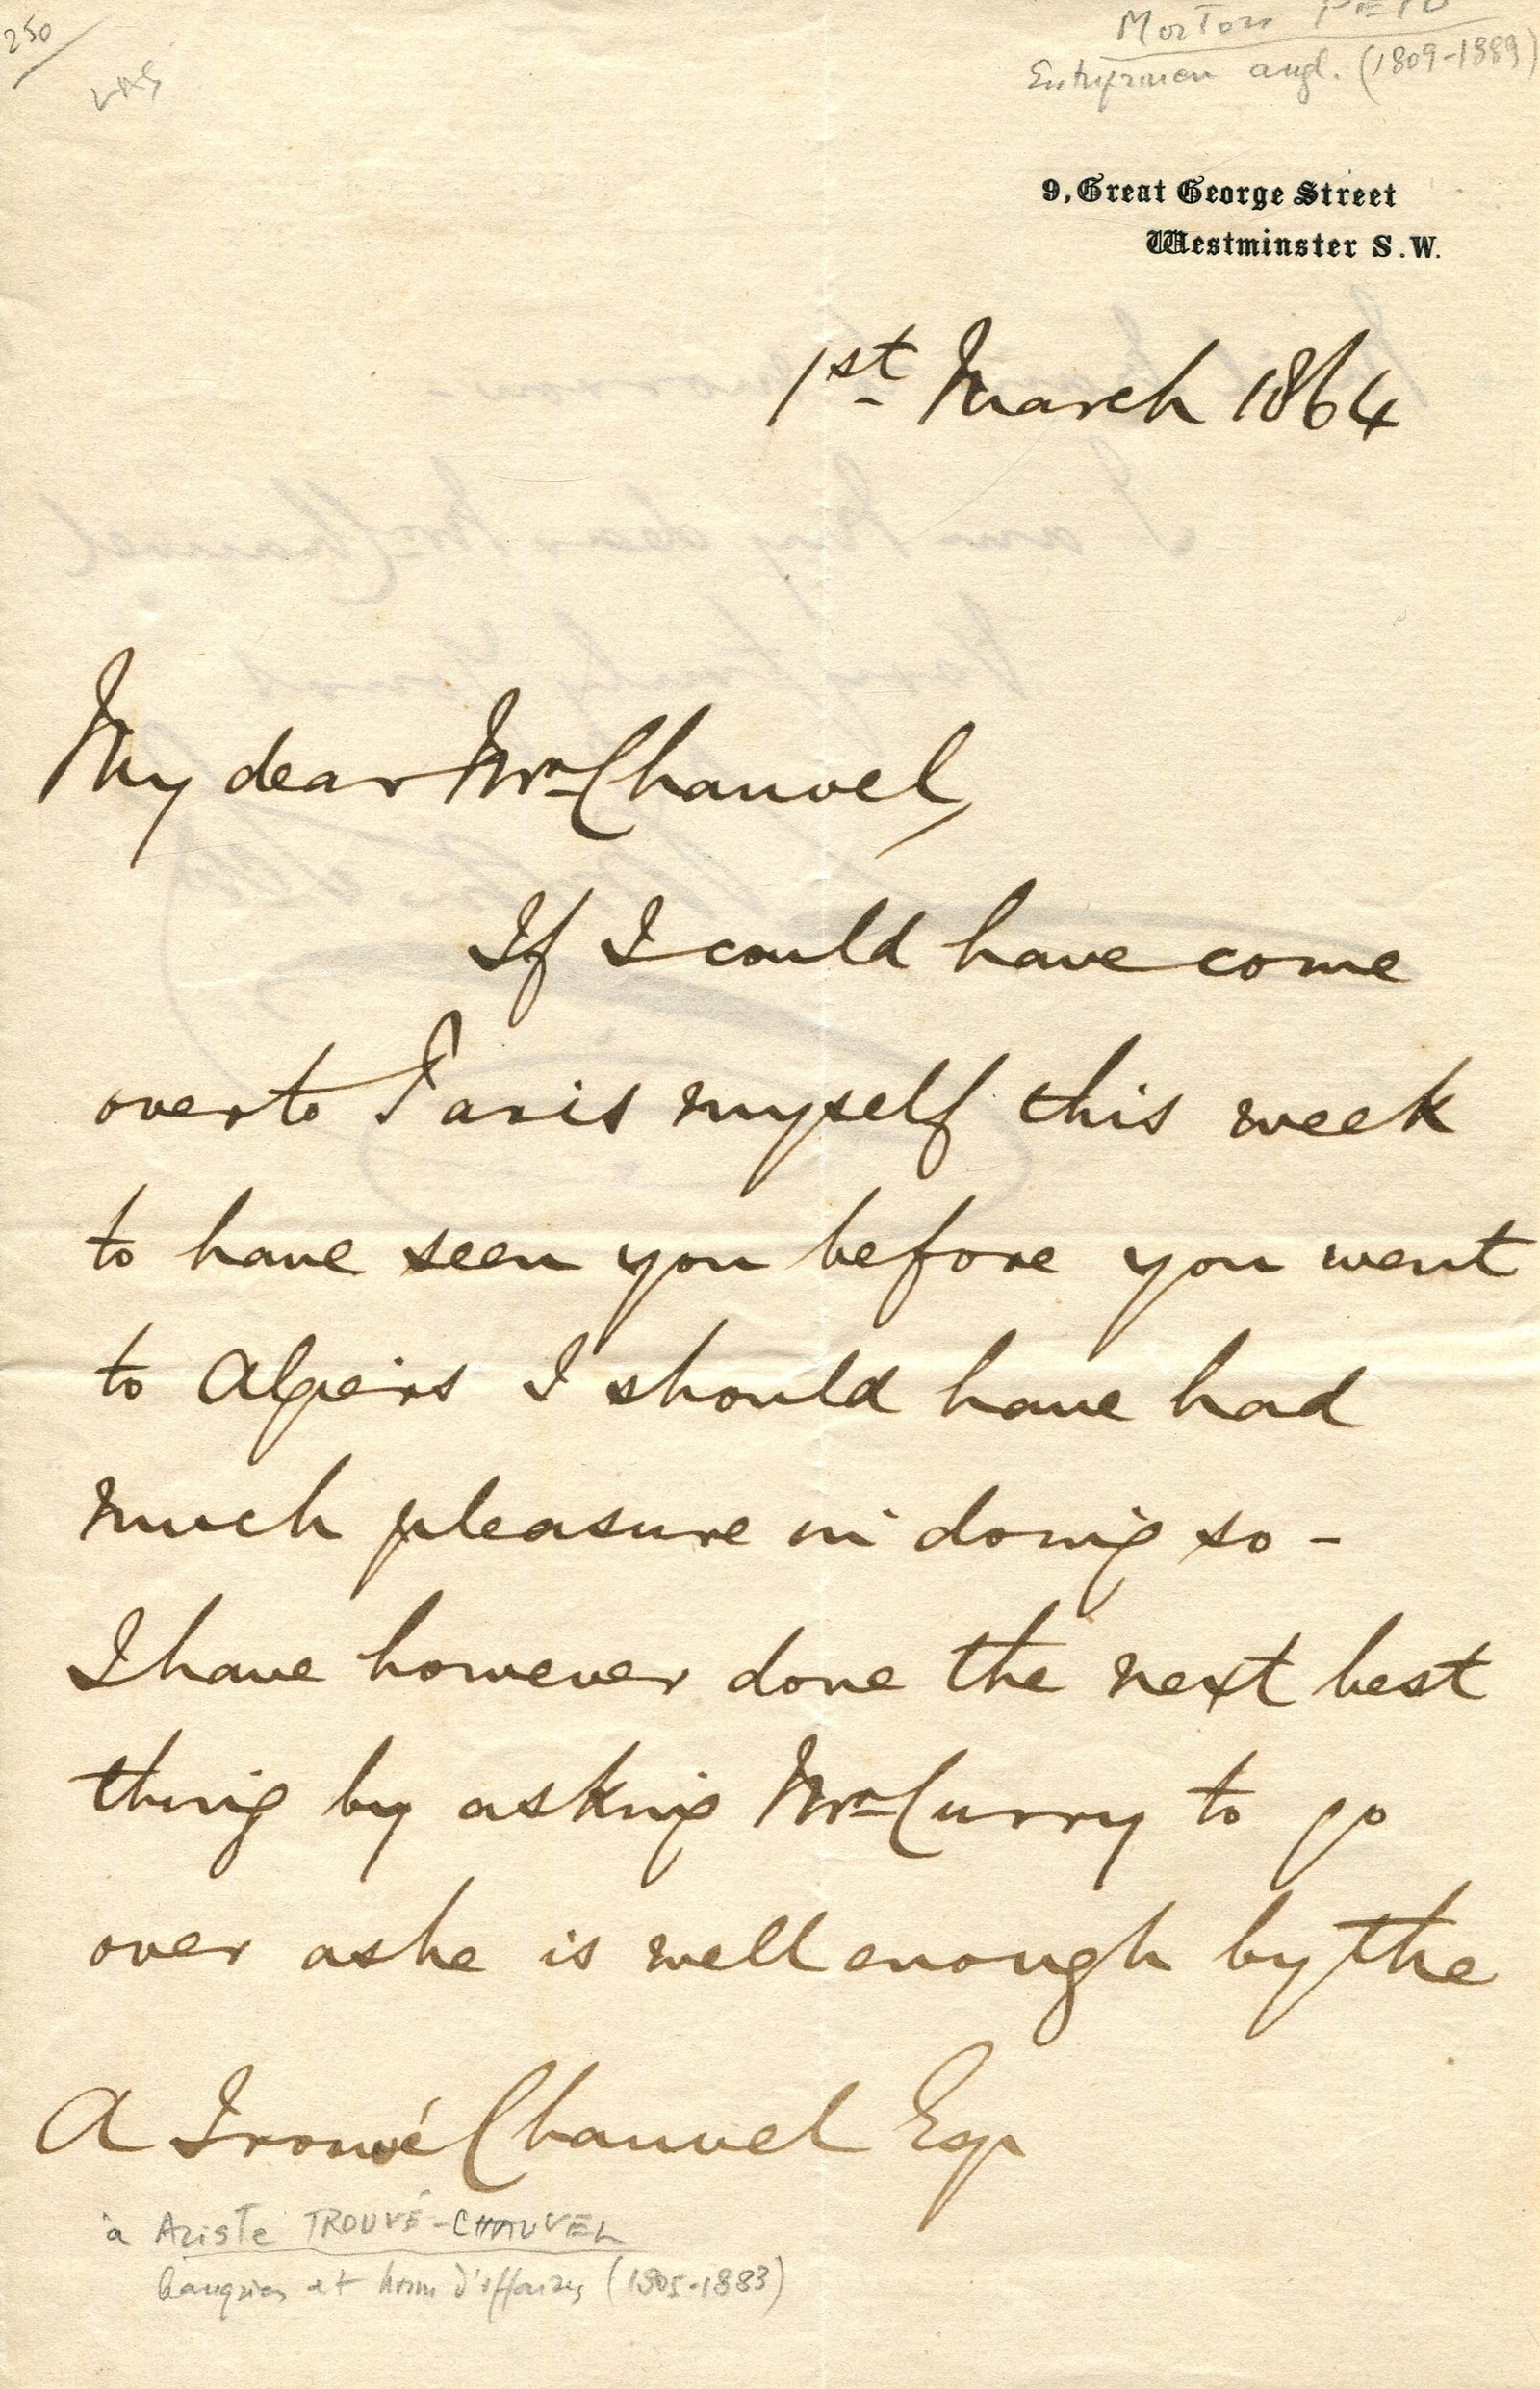 250
LAS
Morton PETO
Entrepreneur angl. (1809-1889)
9, Great George Street
Westminster S.W.
1st March 1864
My dear Mr Chauvel,
If I could have come
over to Paris myself this week
to have seen you before you went
to Algiers I should have had
much pleasure in doing so -
I have however done the next best
thing by asking Mr Curry to go
over as he is well enough by the
A Trouvé Chauvel Esq
à Ariste TROUVÉ-CHAUVEL
banquier et homme d'affaires (1805-1883)